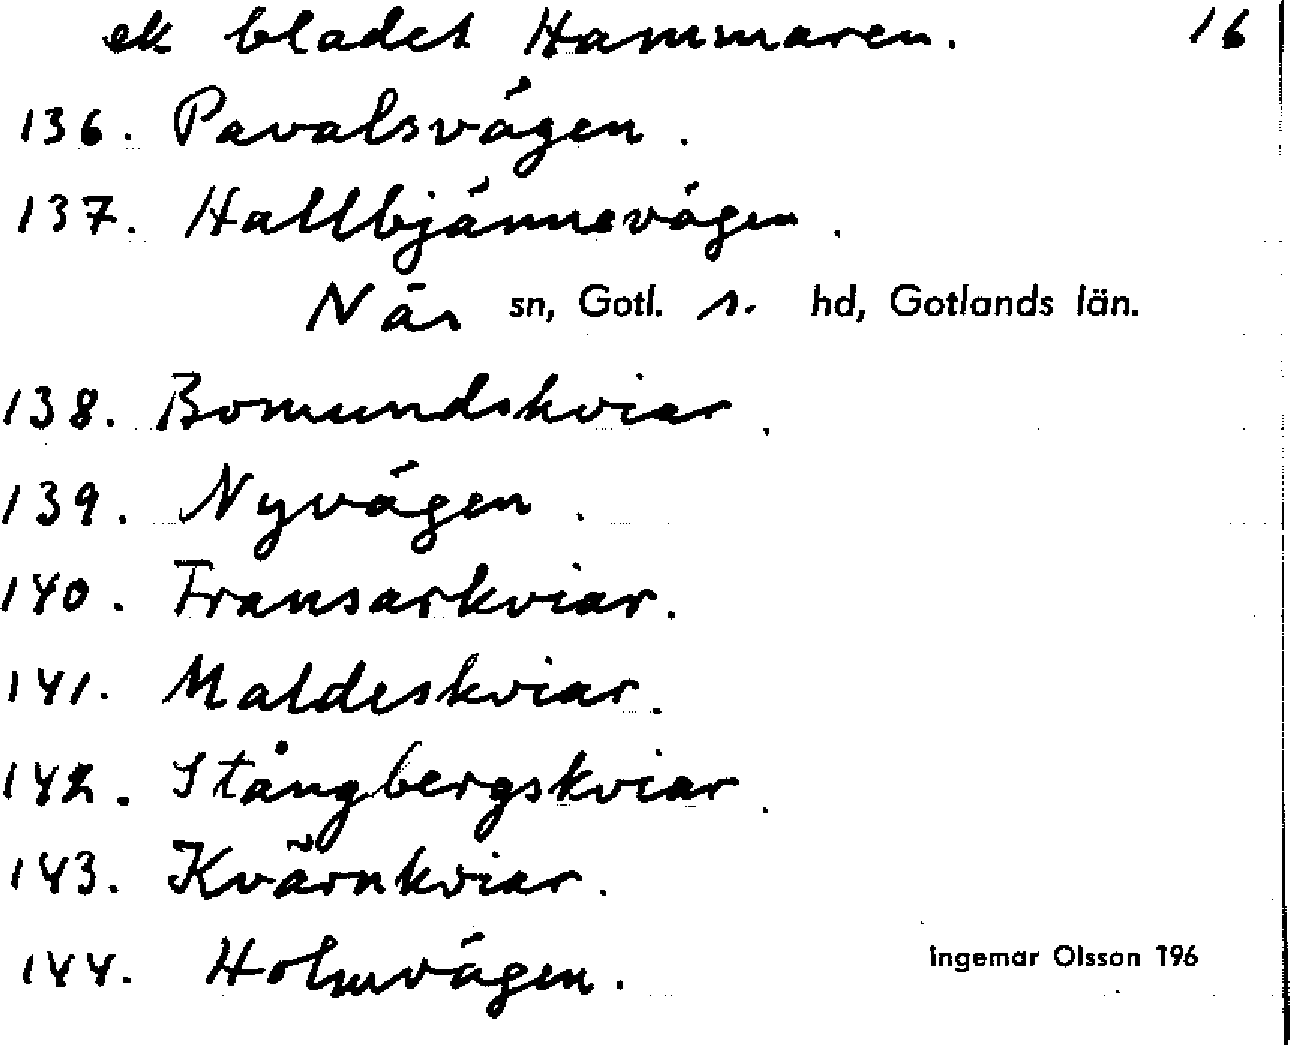 ek bladet Hammaren. 16
136. Pavalsvägen.
137. Hallbjännevägen.
När sn, Gotl. s. hd, Gotlands län.
138. Bomundskviar.
139. Nyvägen.
140. Fransarkviar.
141. Maldeskviar.
142. Stångbergskviar.
143. Kvärnkviar.
144. Holmvägen.
Ingemar Olsson 196